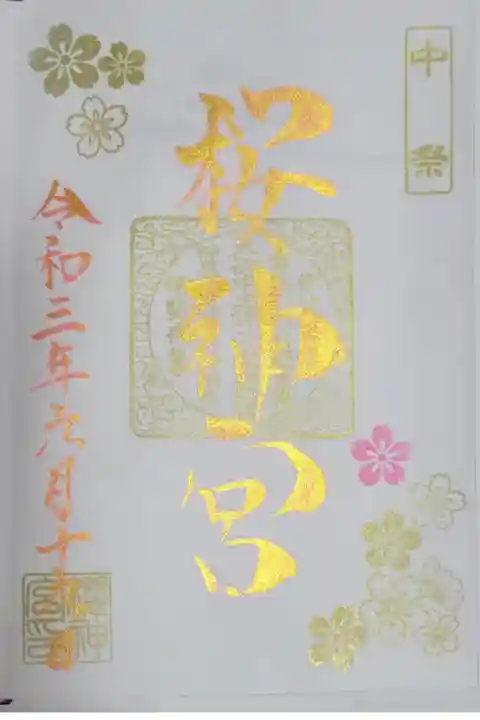 中祭
桜神宮
令和三年六月十